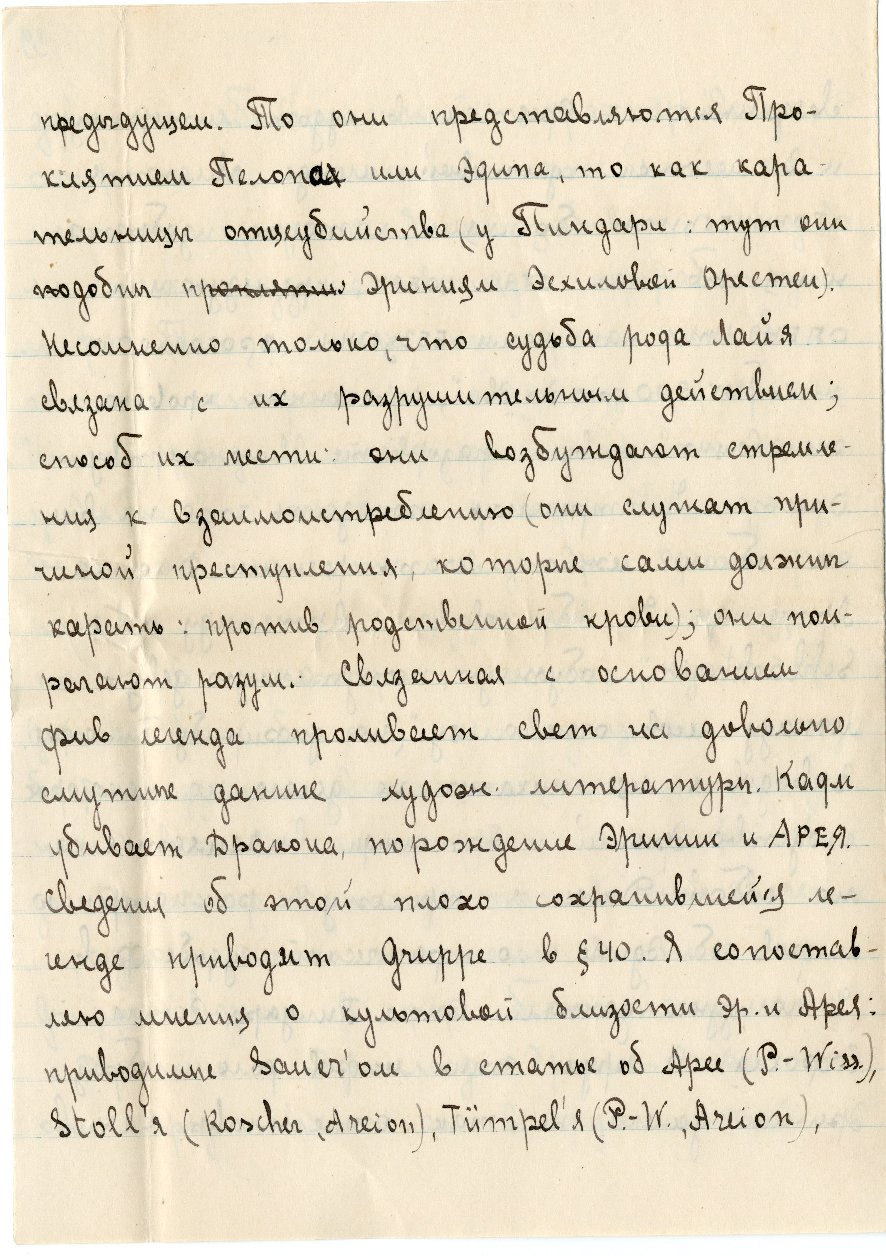 предыдущем. То они представляются Про-
клятием Пелопа или Эдипа, то как кара-
тельницы отцеубийства (у Пиндара: тут они
подобны прокляти Эриниям Эсхиловой Орестеи).
Несомненно только, что судьба рода Лайя
связана с их разрушительным действием;
способ их мести: они возбуждают стремле-
ния к взаимоистреблению (они служат при-
чиной преступления, которые сами должны
карать: против родственной крови); они пом-
рачают разум. Связанная с основанием
Фив легенда проливает свет на довольно
смутные данные худож. литературы. Кадм
убивает Дракона, порождение Эринии и АРЕЯ.
Сведения об этой плохо сохранившейся ле-
генде приводит Gruppe в § 40. Я сопостав-
ляю мнения о культовой близости Эр. и Арея:
приводимые Sauer'ом в статье об Арее (P.-Wiss.),
Stoll'я (Roscher, Areion), Tümpel'я (P.-W., Areion),